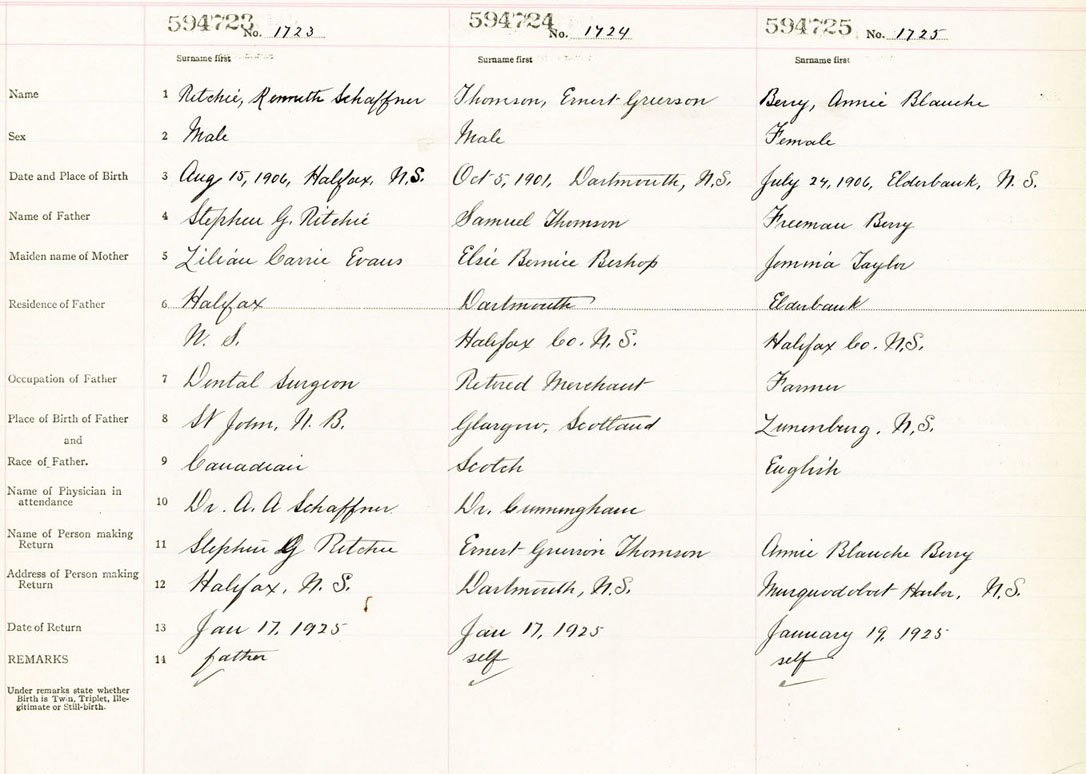 594723 No. 1723 594724 No. 1724 594725 No. 1725
Surname first Surname first Surname first
Name 1 Ritchie, Kenneth Schaffner Thomson, Ernest Grierson Berry, Annie Blanche
Sex 2 Male Male Female
Date and Place of Birth 3 Aug 15, 1906, Halifax, N.S. Oct 5, 1901, Dartmouth, N.S. July 24, 1906, Elderbank, N.S.
Name of Father 4 Stephen G. Ritchie Samuel Thomson Freeman Berry
Maiden name of Mother 5 Lilian Carrie Evans Elsie Bernice Bishop Jemmia Taylor
Residence of Father 6 Halifax Dartmouth Elderbank
N. S. Halifax Co. N.S. Halifax Co. N.S.
Occupation of Father 7 Dental Surgeon Retired Merchant Farmer
Place of Birth of Father 8 St John, N.B. Glasgow, Scotland Lunenburg, N.S.
and
Race of Father. 9 Canadian Scotch English
Name of Physician in
attendance 10 Dr. A. A Schaffner Dr. Cunningham
Name of Person making
Return 11 Stephen G Ritchie Ernest Grierson Thomson Annie Blanche Berry
Address of Person making
Return 12 Halifax, N.S. Dartmouth, N.S. Musquodoboit Harbor, N.S.
Date of Return 13 Jan 17, 1925 Jan 17, 1925 January 19, 1925
REMARKS 14 father self self
Under remarks state whether
Birth is Twin, Triplet, Ille-
gitimate or Still-birth.